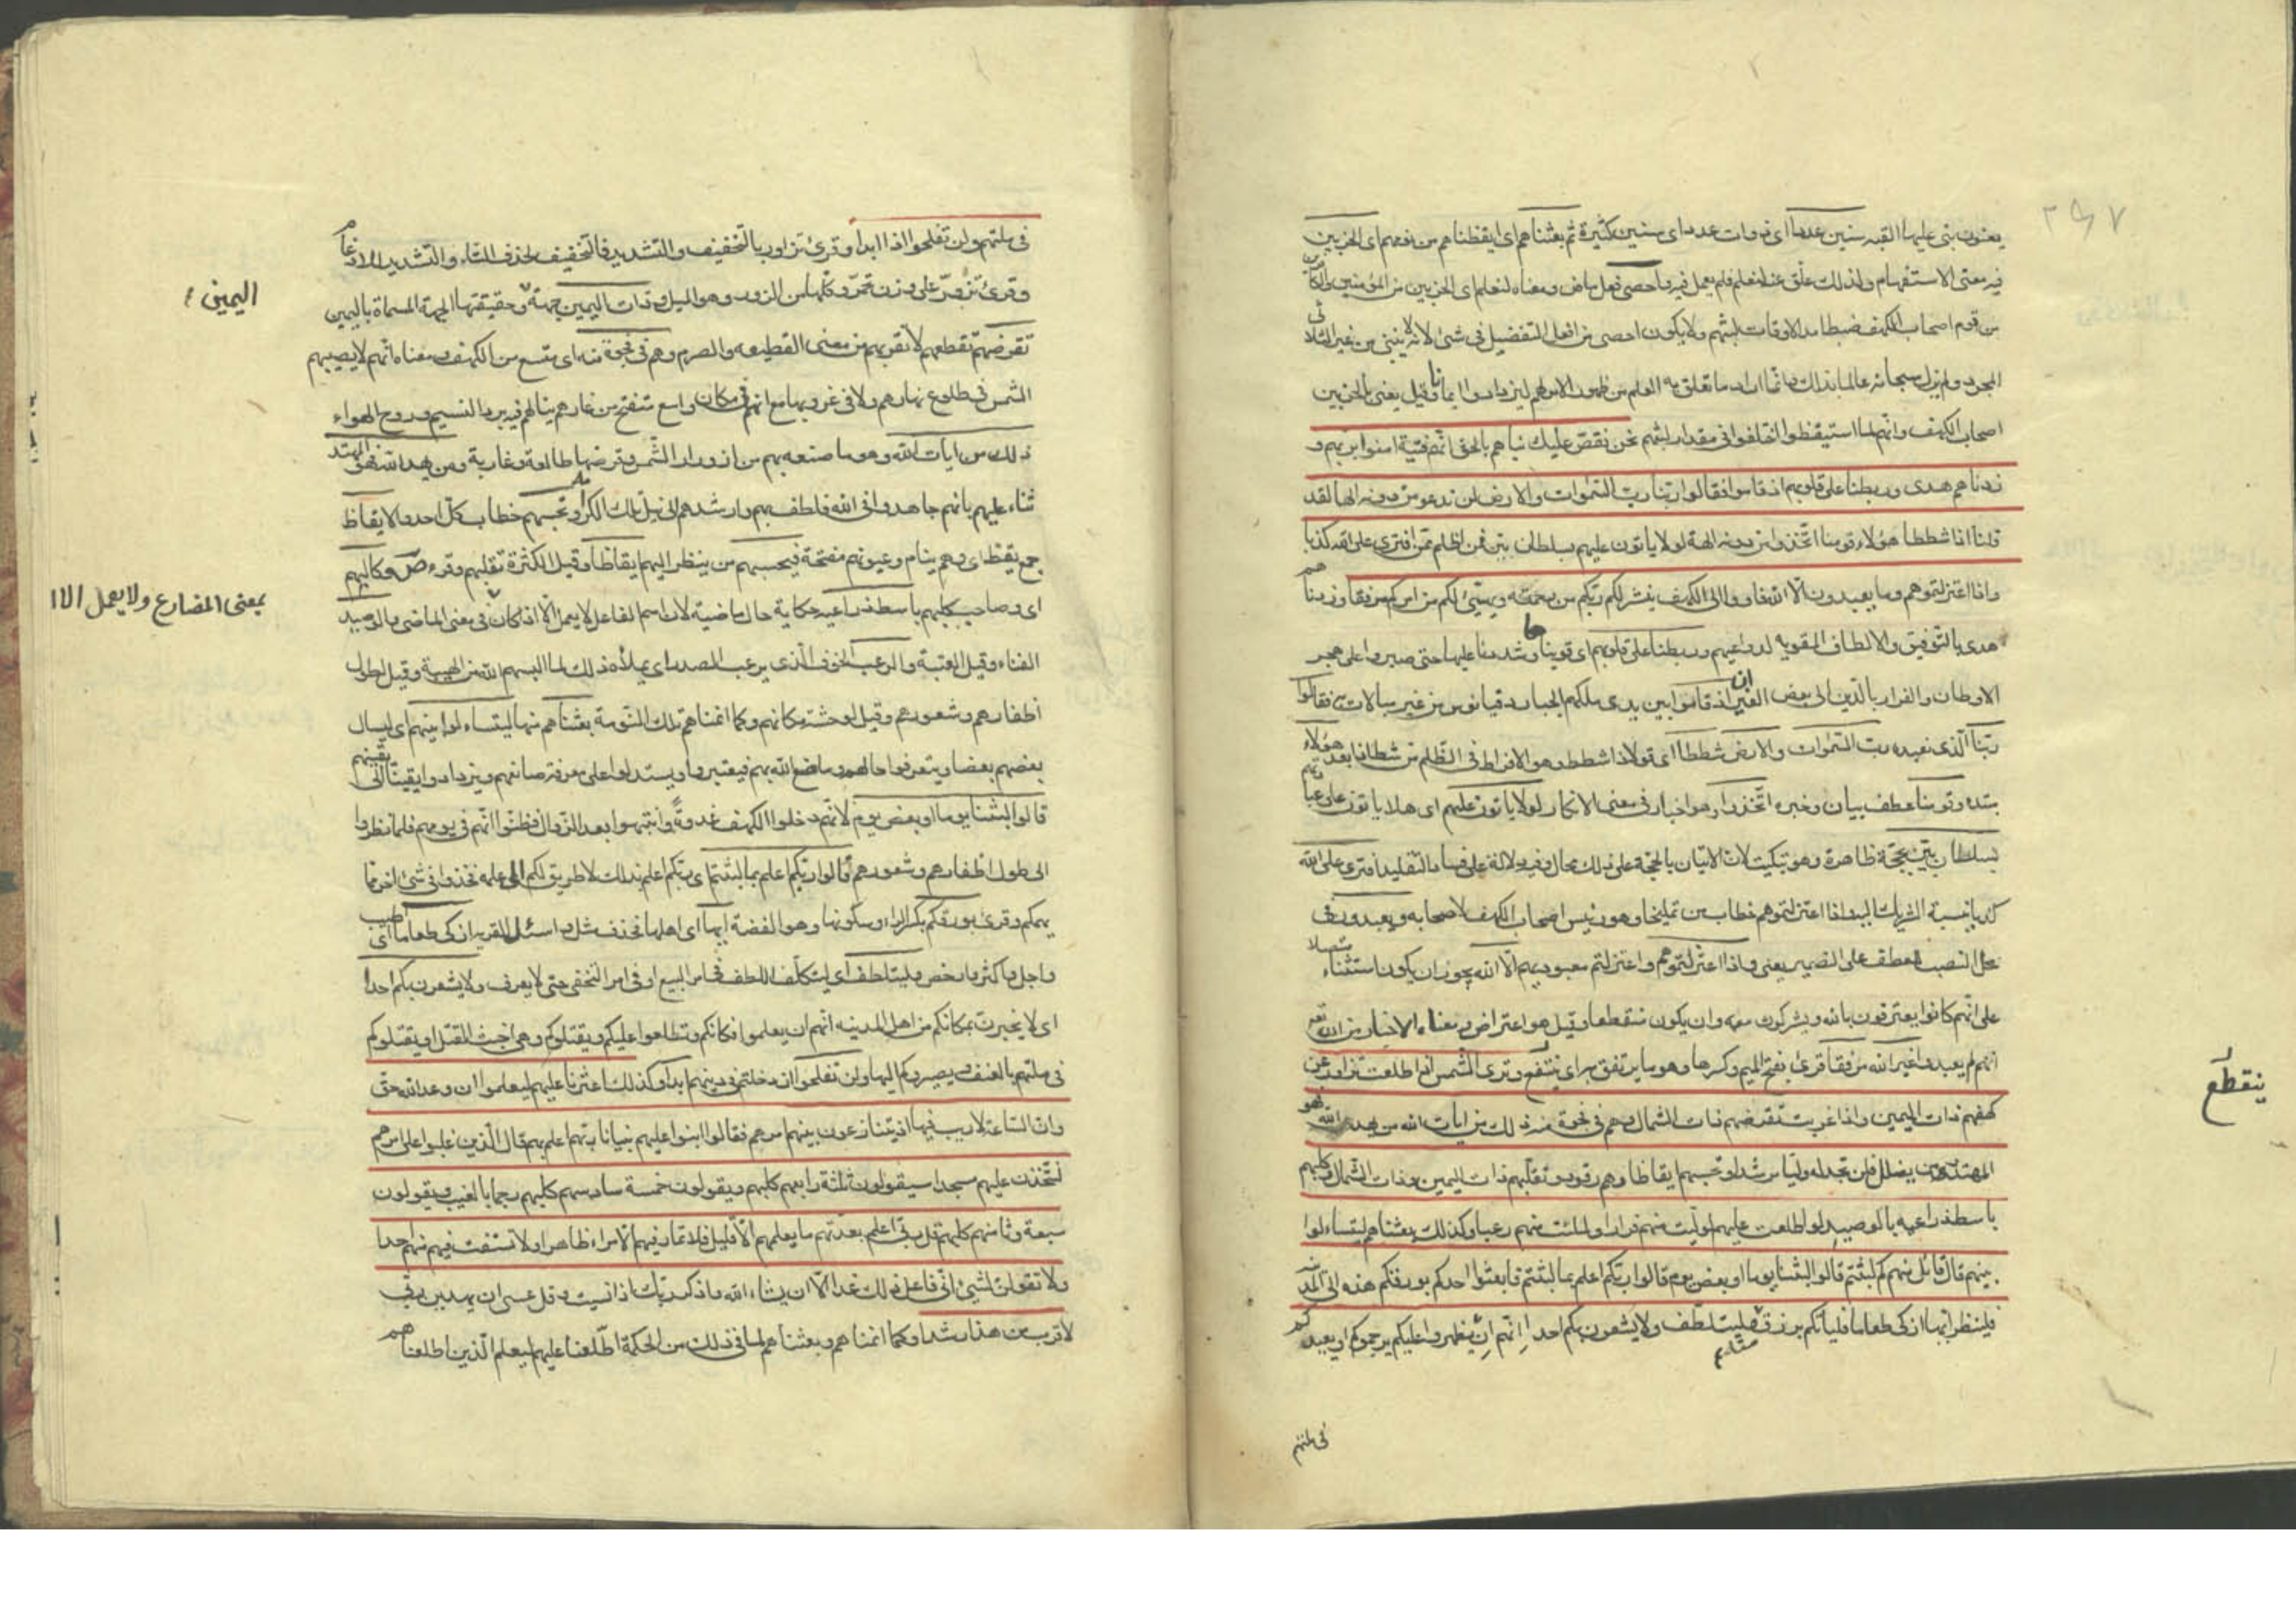 ٢٩٧
يعنون بنى عليها القبه سنين عددا اى ذوات عدد اى سنين كثيرة ثم بعثناهم اى ايقظناهم من نومهم اى الحزبين
فيه معنى الاستفهام ولذلك علق عنه لنعلم فلم يعمل فيه واحصى فعل ماض ومعناه لنعلم اى الحزبين من المؤمنين والكافرين
من قوم اصحاب الكهف ضبط امد الاوقات لبثهم ولا يكون احصى من افعل التفضيل فى شئ لانه لا يبنى من غير الثلاثى
المجرد ولم يزل سبحانه عالما بذلك وانما اراد ما تعلق به العلم من ظهور الامر لهم ليزدادوا ايمانا وقيل يعنى بالحزبين
اصحاب الكهف وانهم لما استيقظوا اختلفوا فى مقدار لبثهم نحن نقص عليك نباهم بالحق انهم فتية امنوا بربهم و
زدناهم هدى وربطنا على قلوبهم اذ قاموا فقالوا ربنا رب السموات والارض لن ندعو من دونه الها لقد
قلنا اذا شططا هؤلاء قومنا اتخذوا من دونه الهة لولا ياتون عليهم بسلطان بين فمن اظلم ممن افترى على الله كذبا
واذ اعتزلتموهم وما يعبدون الا الله فاووا الى الكهف ينشر لكم ربكم من رحمته ويهيئ لكم من امركم مرفقا وزدناهم
هدى بالتوفيق والالطاف المقويه لدواعيهم وربطنا على قلوبهم اى قويناها وشددنا عليها حتى صبروا على هجر
الاوطان والفرار بالدين الى بعض الغيران اذ قاموا بين يدى ملكهم الجبار دقيانوس من غير مبالات به فقالوا
ربنا الذى نعبده رب السموات والارض شططا اى قولا ذا شطط وهو الافراط فى الظلم من شط اذا بعد هؤلاء
مبتدء وقومنا عطف بيان وخبره اتخذوا وهو اخبار فى معنى الانكار لولا ياتون عليهم اى هلا ياتون على عبادتهم
بسلطان بين بحجة ظاهرة وهو تبكيت لان الاتيان بالحجة على ذلك محال وفيه دلالة على فساد التقليد افترى على الله
كذبا بنسبة الشريك اليه واذ اعتزلتموهم خطاب من تمليخا وهو رئيس اصحاب الكهف لاصحابه وما يعبدون فى
محل النصب لعطف على الضمير يعنى واذ اعتزلتموهم واعتزلتم معبوديهم الا الله يجوز ان يكون استثناء متصلا
على انهم كانوا يعترفون بالله ويشركون معه وان يكون منقطعا وقيل هو اعتراض ومعناه الاخبار من الله تعم
انهم لم يعبدوا غير الله مرفقا قرئ بفتح الميم وكسرها وهو ما يرتفق به اى ينتفع وترى الشمس اذا طلعت تزاور عن
ينقطع
كهفهم ذات اليمين واذا غربت تقرضهم ذات الشمال وهم فى فجوة منه ذلك من ايات الله من يهد الله فهو
المهتد ومن يضلل فلن تجد له وليا مرشدا وتحسبهم ايقاظا وهم رقود ونقلبهم ذات اليمين وذات الشمال وكلبهم
باسط ذراعيه بالوصيد لو اطلعت عليهم لوليت منهم فرارا ولملئت منهم رعبا وكذلك بعثناهم ليتساءلوا
بينهم قال قائل منهم كم لبثتم قالوا لبثنا يوما او بعض يوم قالوا ربكم اعلم بما لبثتم فابعثوا احدكم بورقكم هذه الى المدينة
فلينظر ايها ازكى طعاما فلياتكم برزق منه وليتلطف ولا يشعرن بكم احدا انهم ان يظهروا عليكم يرجموكم او يعيدوكم
فى ملتهم
فى ملتهم ولن تفلحوا اذا ابدا وقرئ تزاور بالتخفيف والتشديد فالتخفيف لحذف التاء والتشديد للادغام
وقرئ تزور على وزن تحمر وكلها من الزور وهو الميل وذات اليمين جهة وحقيقتها الجهة المسماة باليمين
اليمين
تقرضهم تقطعهم لا تقربهم من معنى القطيعه والصرم وهم فى فجوة منه اى متسع من الكهف ومعناه انهم لا يصيبهم
الشمس فى طلوع نهارهم ولا فى غروبها مع انهم فى مكان واسع منفتح من غارهم ينالهم فيه برد النسيم وروح الهواء
ذلك من ايات الله وهو ما صنعه بهم من ازورار الشمس وقرضها طالعة وغاربة ومن يهد الله فهو المهتد
ثناء عليهم بانهم جاهدوا فى الله فلطف بهم وارشدهم الى نيل تلك الكرامة وتحسبهم خطاب لكل احد والايقاظ
جمع يقظ اى وهم ينام وعيونهم مفتحة فيحسبهم من ينظر اليهم ايقاظا وقيل لكثرة تقلبهم وقرء ص وكالبهم
اى وصاحب كلبهم باسط ذراعيه حكاية حال ماضية لان اسم الفاعل لا يعمل الا اذا كان فى معنى الماضى والوصيد
بمعنى المضارع ولا يعمل الا
الفناء وقيل العتبة والرعب الخوف الذى يرعب الصدر اى يملأه وذلك لما البسهم الله من الهيبة وقيل لطول
اظفارهم وشعورهم وقيل لوحشة مكانهم وكما انمناهم تلك النومة بعثناهم منها ليتساءلوا بينهم اى ليسال
بعضهم بعضا ويتعرفوا حالهم وما صنع الله بهم فيعتبروا ويستدلوا على معرفة صانعهم ويزدادوا يقينا الى يقينهم
قالوا لبثنا يوما او بعض يوم لانهم دخلوا الكهف غدوة وانتبهوا بعد الزوال فظنوا انهم فى يومهم فلما نظروا
الى طول اظفارهم وشعورهم قالوا ربكم اعلم بما لبثتم اى ربكم اعلم بذلك لا طريق لكم الى علمه فخذوا فى شئ اخر مما
يهمكم وقرئ بورقكم بكسر الراء وسكونها وهو الفضة ايها اى اهلها فحذف مثل واسئل القرية ازكى طعاما اى اطيب
واحل واكثر وارخص وليتلطف اى ليتكلف اللطف فى امر البيع او فى امر التخفى حتى لا يعرف ولا يشعرن بكم احدا
اى لا يخبرن بمكانكم من اهل المدينه انهم ان يعلموا مكانكم وتطلعوا عليكم ويقتلوكم وهى اخبث القتل او يقتلوكم
فى ملتهم بالعنف ويصيروكم اليها ولن تفلحوا ان دخلتم فى دينهم ابدا وكذلك اعثرنا عليهم ليعلموا ان وعد الله حق
وان الساعة لا ريب فيها اذ يتنازعون بينهم امرهم فقالوا ابنوا عليهم بنيانا ربهم اعلم بهم قال الذين غلبوا على امرهم
لنتخذن عليهم مسجدا سيقولون ثلثة رابعهم كلبهم ويقولون خمسة سادسهم كلبهم رجما بالغيب ويقولون
سبعة وثامنهم كلبهم قل ربى اعلم بعدتهم ما يعلمهم الا قليل فلا تمار فيهم الا مراء ظاهرا ولا تستفت فيهم منهم احدا
ولا تقولن لشئ انى فاعل ذلك غدا الا ان يشاء الله واذكر ربك اذا نسيت وقل عسى ان يهدين ربى
لاقرب من هذا رشدا وكما انمناهم وبعثناهم لما فى ذلك من الحكمة اطلعنا عليهم ليعلم الذين اطلعناهم